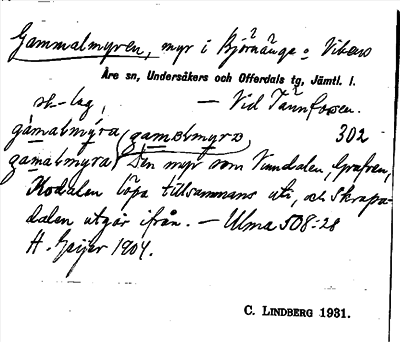 Gammalmyren, myr i Björnänge o Vikens
Åre sn, Undersåkers och Offerdals tg, Jämtl. l.
sk-lag, — Vid Tännforsen.
gàmalmy̆ra (gamalmyra 302
gamalmyra) Den myr som Vundalen, Grafven,
Kodalen löpa tillsammans uti, och Skrapa-
dalen utgår ifrån. — Ulma 508:28
H. Geijer 1904.
C. LINDBERG 1931.